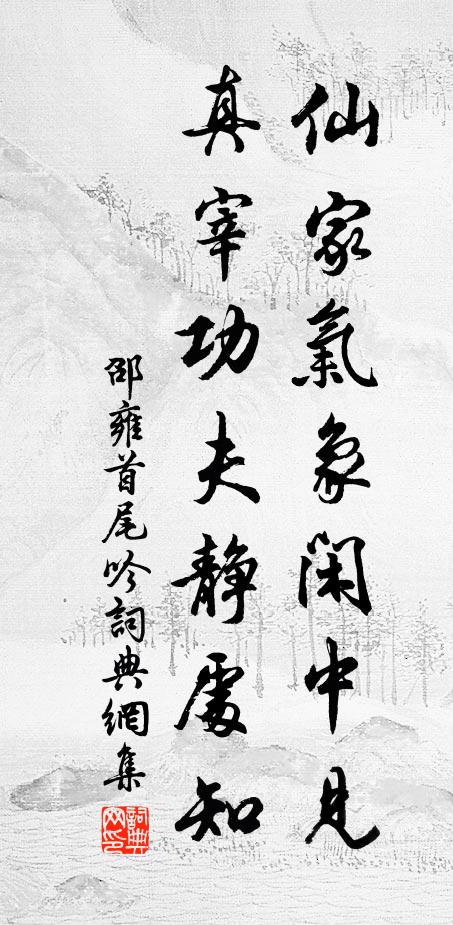 仙家氣象閑中見
真宰功夫靜處知
邵雍首尾吟詞典網集
詞典網印